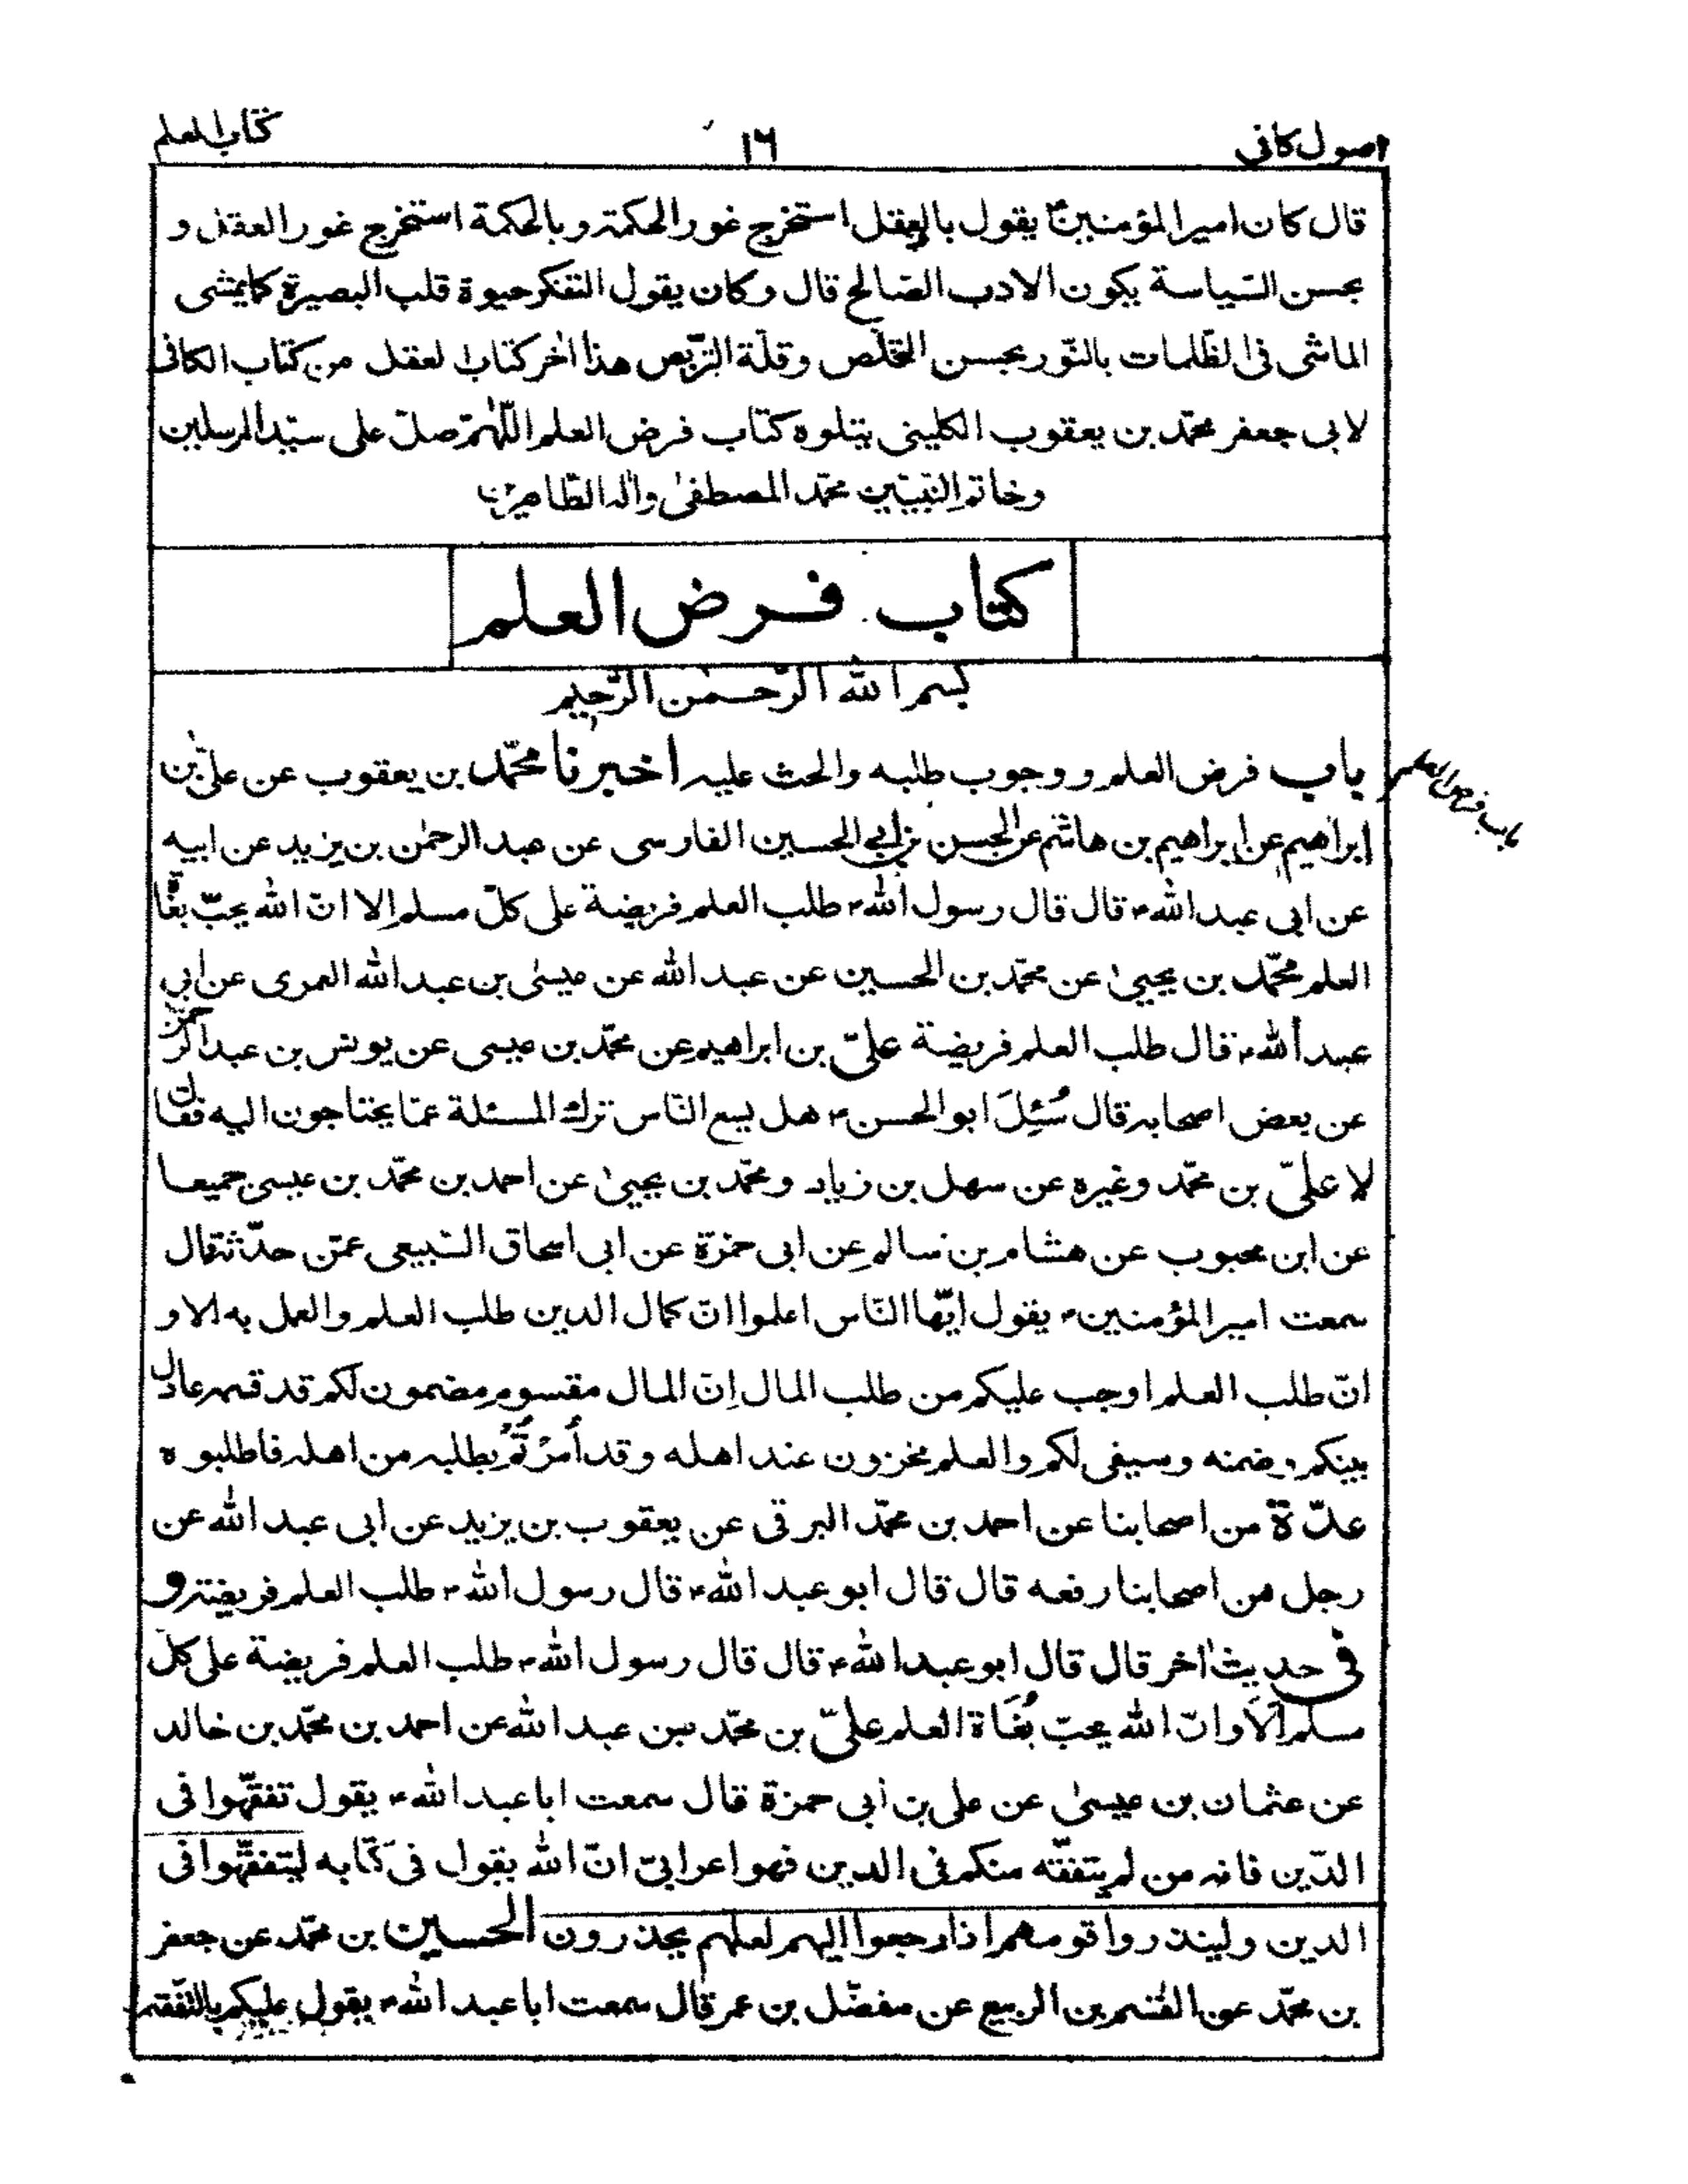 اصول كافى
١٦
كتاب العلم
قال كان امير المؤمنينؑ يقول بالعقل استخرج غور الحكمة وبالحكمة استخرج غور العقل و
بحسن السّياسة يكون الادب الصّالح قال وكان يقول التفكر حيوة قلب البصيرة كما يمشى
الماشى فى الظّلمات بالنّور بحسن التخلّص وقلّة التربّص هذا اٰخر كتاب العقل من كتاب الكافى
لابى جعفر محمّد بن يعقوب الكلينى يتلوه كتاب فرض العلم اللّهمّ صلّ على سيّد المرسلين
وخاتم النّبيّين محمّد المصطفىٰ واٰله الطّاهرين
كتاب فرض العلم
بسم الله الرّحمٰن الرّحيم
باب فرض العلم
باب فرض العلم ووجوب طلبه والحث عليه اخبرنا محمّد بن يعقوب عن علىّ بن
ابراهيم عن ابراهيم بن هاشم عن الحسن بن ابي الحسين الفارسى عن عبد الرحمٰن بن يزيد عن ابيه
عن ابى عبد الله؏ قال قال رسول الله؏ طلب العلم فريضة على كلّ مسلم الا انّ الله يحبّ بغاة
العلم محمّد بن يحيىٰ عن محمّد بن الحسين عن عبد الله عن عيسىٰ بن عبد الله العمرى عن ابى
عبد الله؏ قال طلب العلم فريضة علىّ بن ابراهيم عن محمّد بن عيسى عن يونس بن عبد الرحمٰن
عن بعض اصحابه قال سُئِلَ ابو الحسن؏ هل يسع النّاس ترك المسئلة عمّا يحتاجون اليه فقال
لا علىّ بن محمّد وغيره عن سهل بن زياد ومحمّد بن يحيىٰ عن احمد بن محمّد بن عيسى جميعا
عن ابن محبوب عن هشام بن سالم عن ابى حمزة عن ابى اسحاق السّبيعى عمّن حدّثه قال
سمعت امير المؤمنين؏ يقول ايّها النّاس اعلموا انّ كمال الدين طلب العلم والعمل به الا و
انّ طلب العلم اوجب عليكم من طلب المال اِنّ المال مقسوم مضمون لكم قد قسمه عادل
بينكم وضمنه وسيفى لكم والعلم مخزون عند اهله وقد اُمِرْتُمْ بطلبه من اهله فاطلبوه
عدّة من اصحابنا عن احمد بن محمّد البرقى عن يعقوب بن يزيد عن ابى عبد الله عن
رجل من اصحابنا رفعه قال قال ابو عبد الله؏ قال رسول الله؏ طلب العلم فريضة و
فى حديث اٰخر قال قال ابو عبد الله؏ قال قال رسول الله؏ طلب العلم فريضة على كلّ
مسلم اَلَا وانّ الله يحبّ بُغَاة العلم علىّ بن محمّد بن عبد الله عن احمد بن محمّد بن خالد
عن عثمان بن عيسىٰ عن على بن ابى حمزة قال سمعت ابا عبد الله؏ يقول تفقّهوا فى
الدّين فانه من لم يتفقّه منكم فى الدين فهو اعرابىّ انّ الله يقول فى كتابه ليتفقّهوا فى
الدين ولينذروا قومهم اذا رجعوا اليهم لعلهم يحذرون الحسين بن محمّد عن جعفر
بن محمّد عن القٰسم بن الربيع عن مفضّل بن عمر قال سمعت ابا عبد الله؏ يقول عليكم بالتّفقه